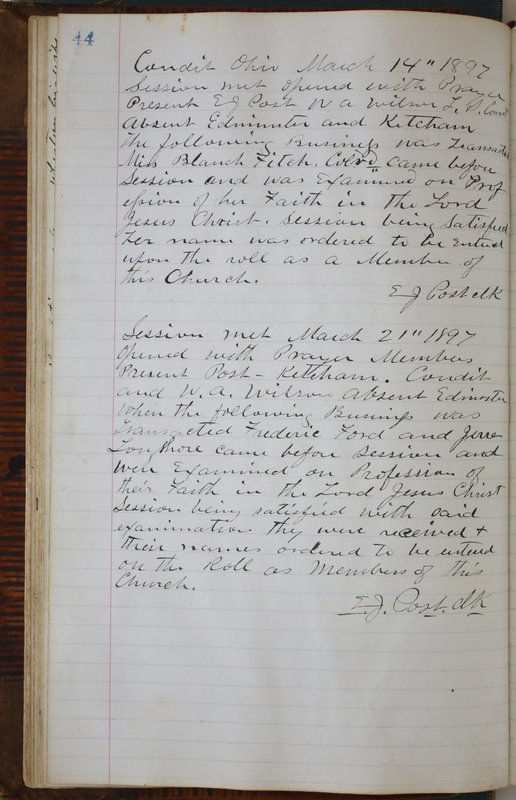 44
Condit Ohio March 14" 1897
Session met opened with Prayer
Present E J Post W a Wilson L. S. Condit
Absent Edminster and Ketcham
the following Busings was Transacted
Miss Blanch Fitch. Col'r'd came before
Session and was Examined on Prof
ession of her Faith in the Lord
Jesus Christ. Session being Satisfied
her name was ordered to be Entered
upon the roll as a Member of
this Church.
E J Post clk
Session met March 21" 1897
Opened with Prayer Members
Present Post - Ketcham. Condit
and W. A. Wilson Absent Edminster
When the following Busings was
Transacted Frederic Ford and
Longshore came before Session and
were Examined on Profession of
their Faith in the Lord Jesus Christ
Session being satisfied with said
examination they were received +
their names ordered to be entered
on the Roll as Members of this
Church.
E. J. Post. clk